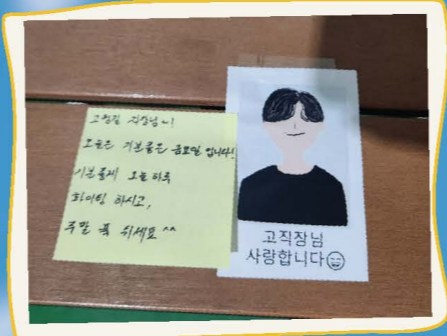 고창길 직장님~!
오늘은 기분좋은 금요일 입니다!
기분좋게 오늘 하루
화이팅 하시고,
주말 푹 쉬세요^^
고직장님
사랑합니다😄